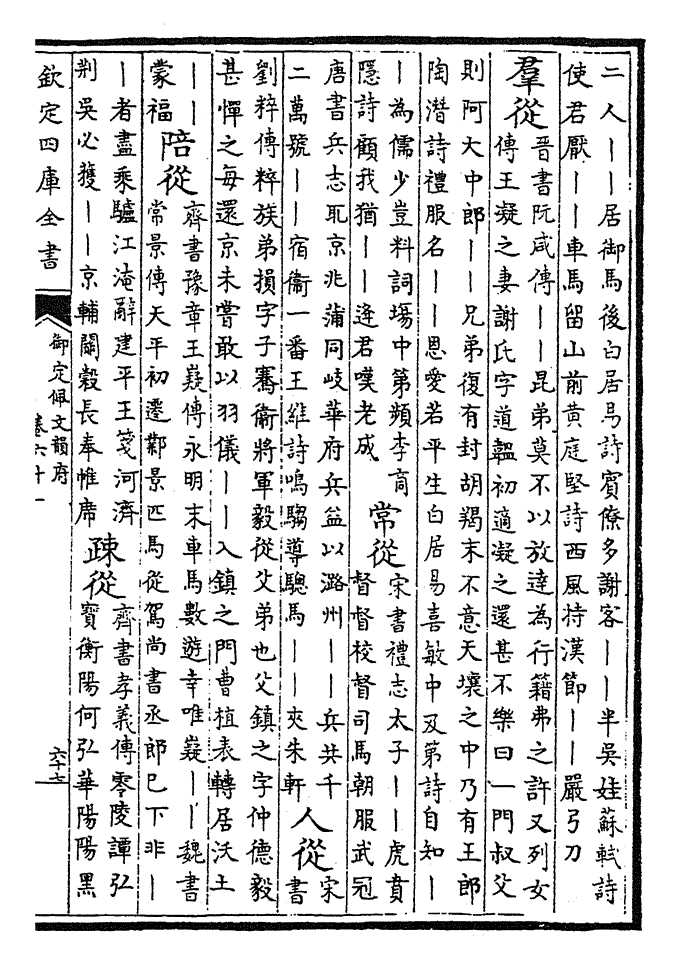 二人——居御馬後白居易詩賓僚多謝客——半吳娃蘇軾詩
使君厭——車馬留山前黄庭堅詩西風持漢節——嚴弓刀
羣從
晉書阮咸傳——昆弟莫不以放達為行籍弗之許又列女
傳王凝之妻謝氏字道韞初適凝之還甚不樂曰一門叔父
則阿大中郎——兄弟復有封胡羯末不意天壤之中乃有王郎
陶潛詩禮服名——恩愛若平生白居易喜敏中及第詩自知—
—為儒少豈料詞塲中第頻李商
隱詩顧我猶——逢君嘆老成
常從
宋書禮志太子——虎賁
督督校督司馬朝服武冠
唐書兵志耴京兆蒲同岐華府兵益以潞州——兵共千
二萬號——宿衞一番王維詩鳴騶導驄馬——夾朱軒
人從
宋
書
劉粹傳粹族弟損字子騫衞將軍毅從父弟也父鎮之字仲德毅
甚憚之每還京未嘗敢以羽儀——入鎮之門曹植表轉居沃土
——
蒙福
陪從
齊書豫章王嶷傳永明末車馬數遊幸唯嶷——魏書
常景傳天平初遷鄴景匹馬從駕尚書丞郎已下非—
—者盡乘驢江淹辭建平王箋河濟
荆吳必獲——京輔闗轂長奉帷席
疎從
齊書孝義傳零陵譚弘
寳衡陽何弘華陽陽黑
欽定四庫全書
御定佩文韻府
卷六十一
六十七